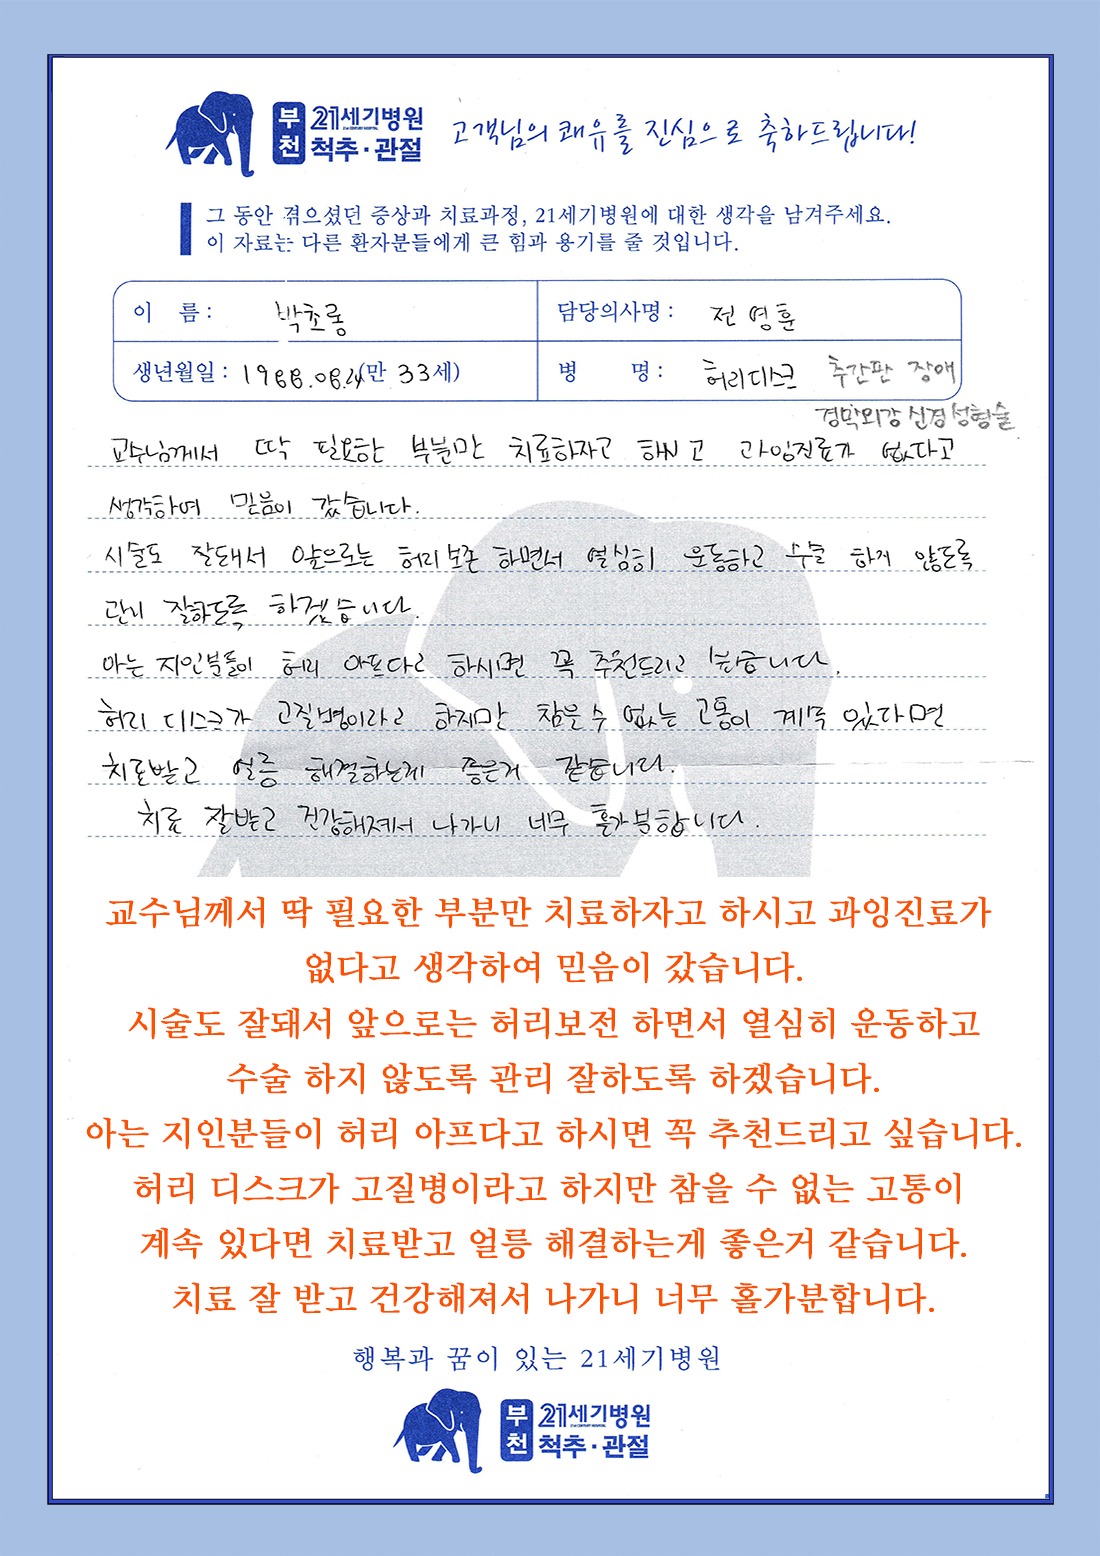 부천 21세기병원 척추·관절
21st CENTURY HOSPITAL
고객님의 쾌유를 진심으로 축하드립니다!
그 동안 겪으셨던 증상과 치료과정, 21세기병원에 대한 생각을 남겨주세요.
이 자료는 다른 환자분들에게 큰 힘과 용기를 줄 것입니다.
이 름 : 박초롱 담당의사명 : 전영훈
생년월일 : (만 33세) 병 명 : 허리디스크 추간판 장애
경막외강 신경성형술
교수님께서 딱 필요한 부분만 치료하자고 하시고 과잉진료가 없다고
생각하여 믿음이 갔습니다.
시술도 잘돼서 앞으로는 허리보존 하면서 열심히 운동하고 수술 하지 않도록
관리 잘하도록 하겠습니다.
아는 지인분들이 허리 아프다고 하시면 꼭 추천드리고 싶습니다.
허리 디스크가 고질병이라고 하지만 참을 수 없는 고통이 계속 있다면
치료받고 얼릉 해결하는게 좋은거 같습니다.
치료 잘받고 건강해져서 나가니 너무 홀가분합니다.
교수님께서 딱 필요한 부분만 치료하자고 하시고 과잉진료가
없다고 생각하여 믿음이 갔습니다.
시술도 잘돼서 앞으로는 허리보전 하면서 열심히 운동하고
수술 하지 않도록 관리 잘하도록 하겠습니다.
아는 지인분들이 허리 아프다고 하시면 꼭 추천드리고 싶습니다.
허리 디스크가 고질병이라고 하지만 참을 수 없는 고통이
계속 있다면 치료받고 얼릉 해결하는게 좋은거 같습니다.
치료 잘 받고 건강해져서 나가니 너무 홀가분합니다.
행복과 꿈이 있는 21세기병원
부천 21세기병원 척추·관절
21st CENTURY HOSPITAL